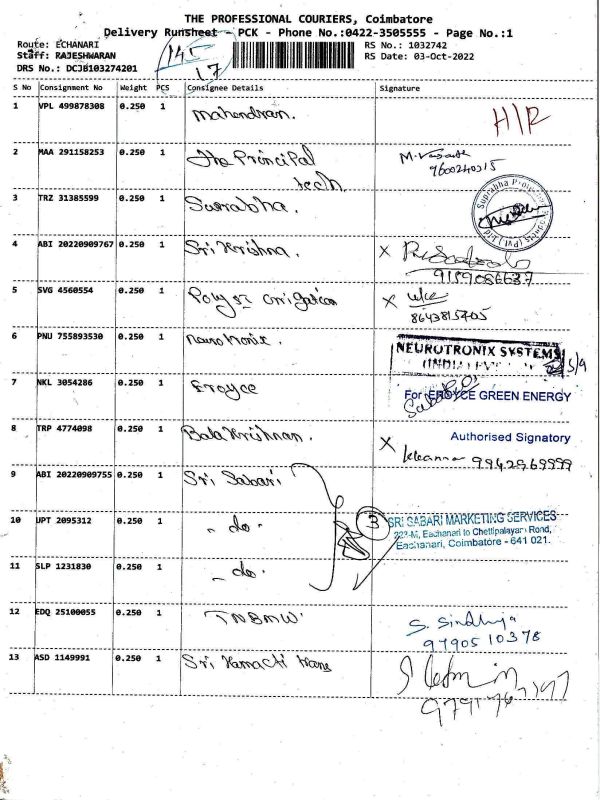 THE PROFESSIONAL COURIERS, Coimbatore
Delivery Runsheet - PCK - Phone No.:0422-3505555 - Page No.:1
Route: ECHANARI RS No.: 1032742
Staff: RAJESHWARAN RS Date: 03-Oct-2022
DRS No.: DCJB103274201
S No Consignment No Weight PCS Consignee Details Signature
1 VPL 499878308 0.250 1 Mahendran. H/R
2 MAA 291158253 0.250 1 The Principal
tech
9600240315
3 TRZ 31385599 0.250 1 Suprabha
4 ABI 20220909767 0.250 1 Sri Krishna. X
9159086637
5 SVG 4560554 0.250 1 X
8643815705
6 PNU 755893530 0.250 1 neurotronix.
NEUROTRONIX SYSTEMS
7 NKL 3054286 0.250 1 Eroyce
For EROYCE GREEN ENERGY
Authorised Signatory
8 TRP 4774098 0.250 1 Bala Krishnan. X
9942969999
9 ABI 20220909755 0.250 1 Sri Sabari
10 UPT 2095312 0.250 1 - do - 3
SRI SABARI MARKETING SERVICES
Eachanari to Chettipalayam Road,
Eachanari, Coimbatore - 641 021.
11 SLP 1231830 0.250 1 - do -
12 EDQ 25100055 0.250 1 TNBMW S. Sindhuja
9790510378
13 ASD 1149991 0.250 1 Sri Kamachi trans